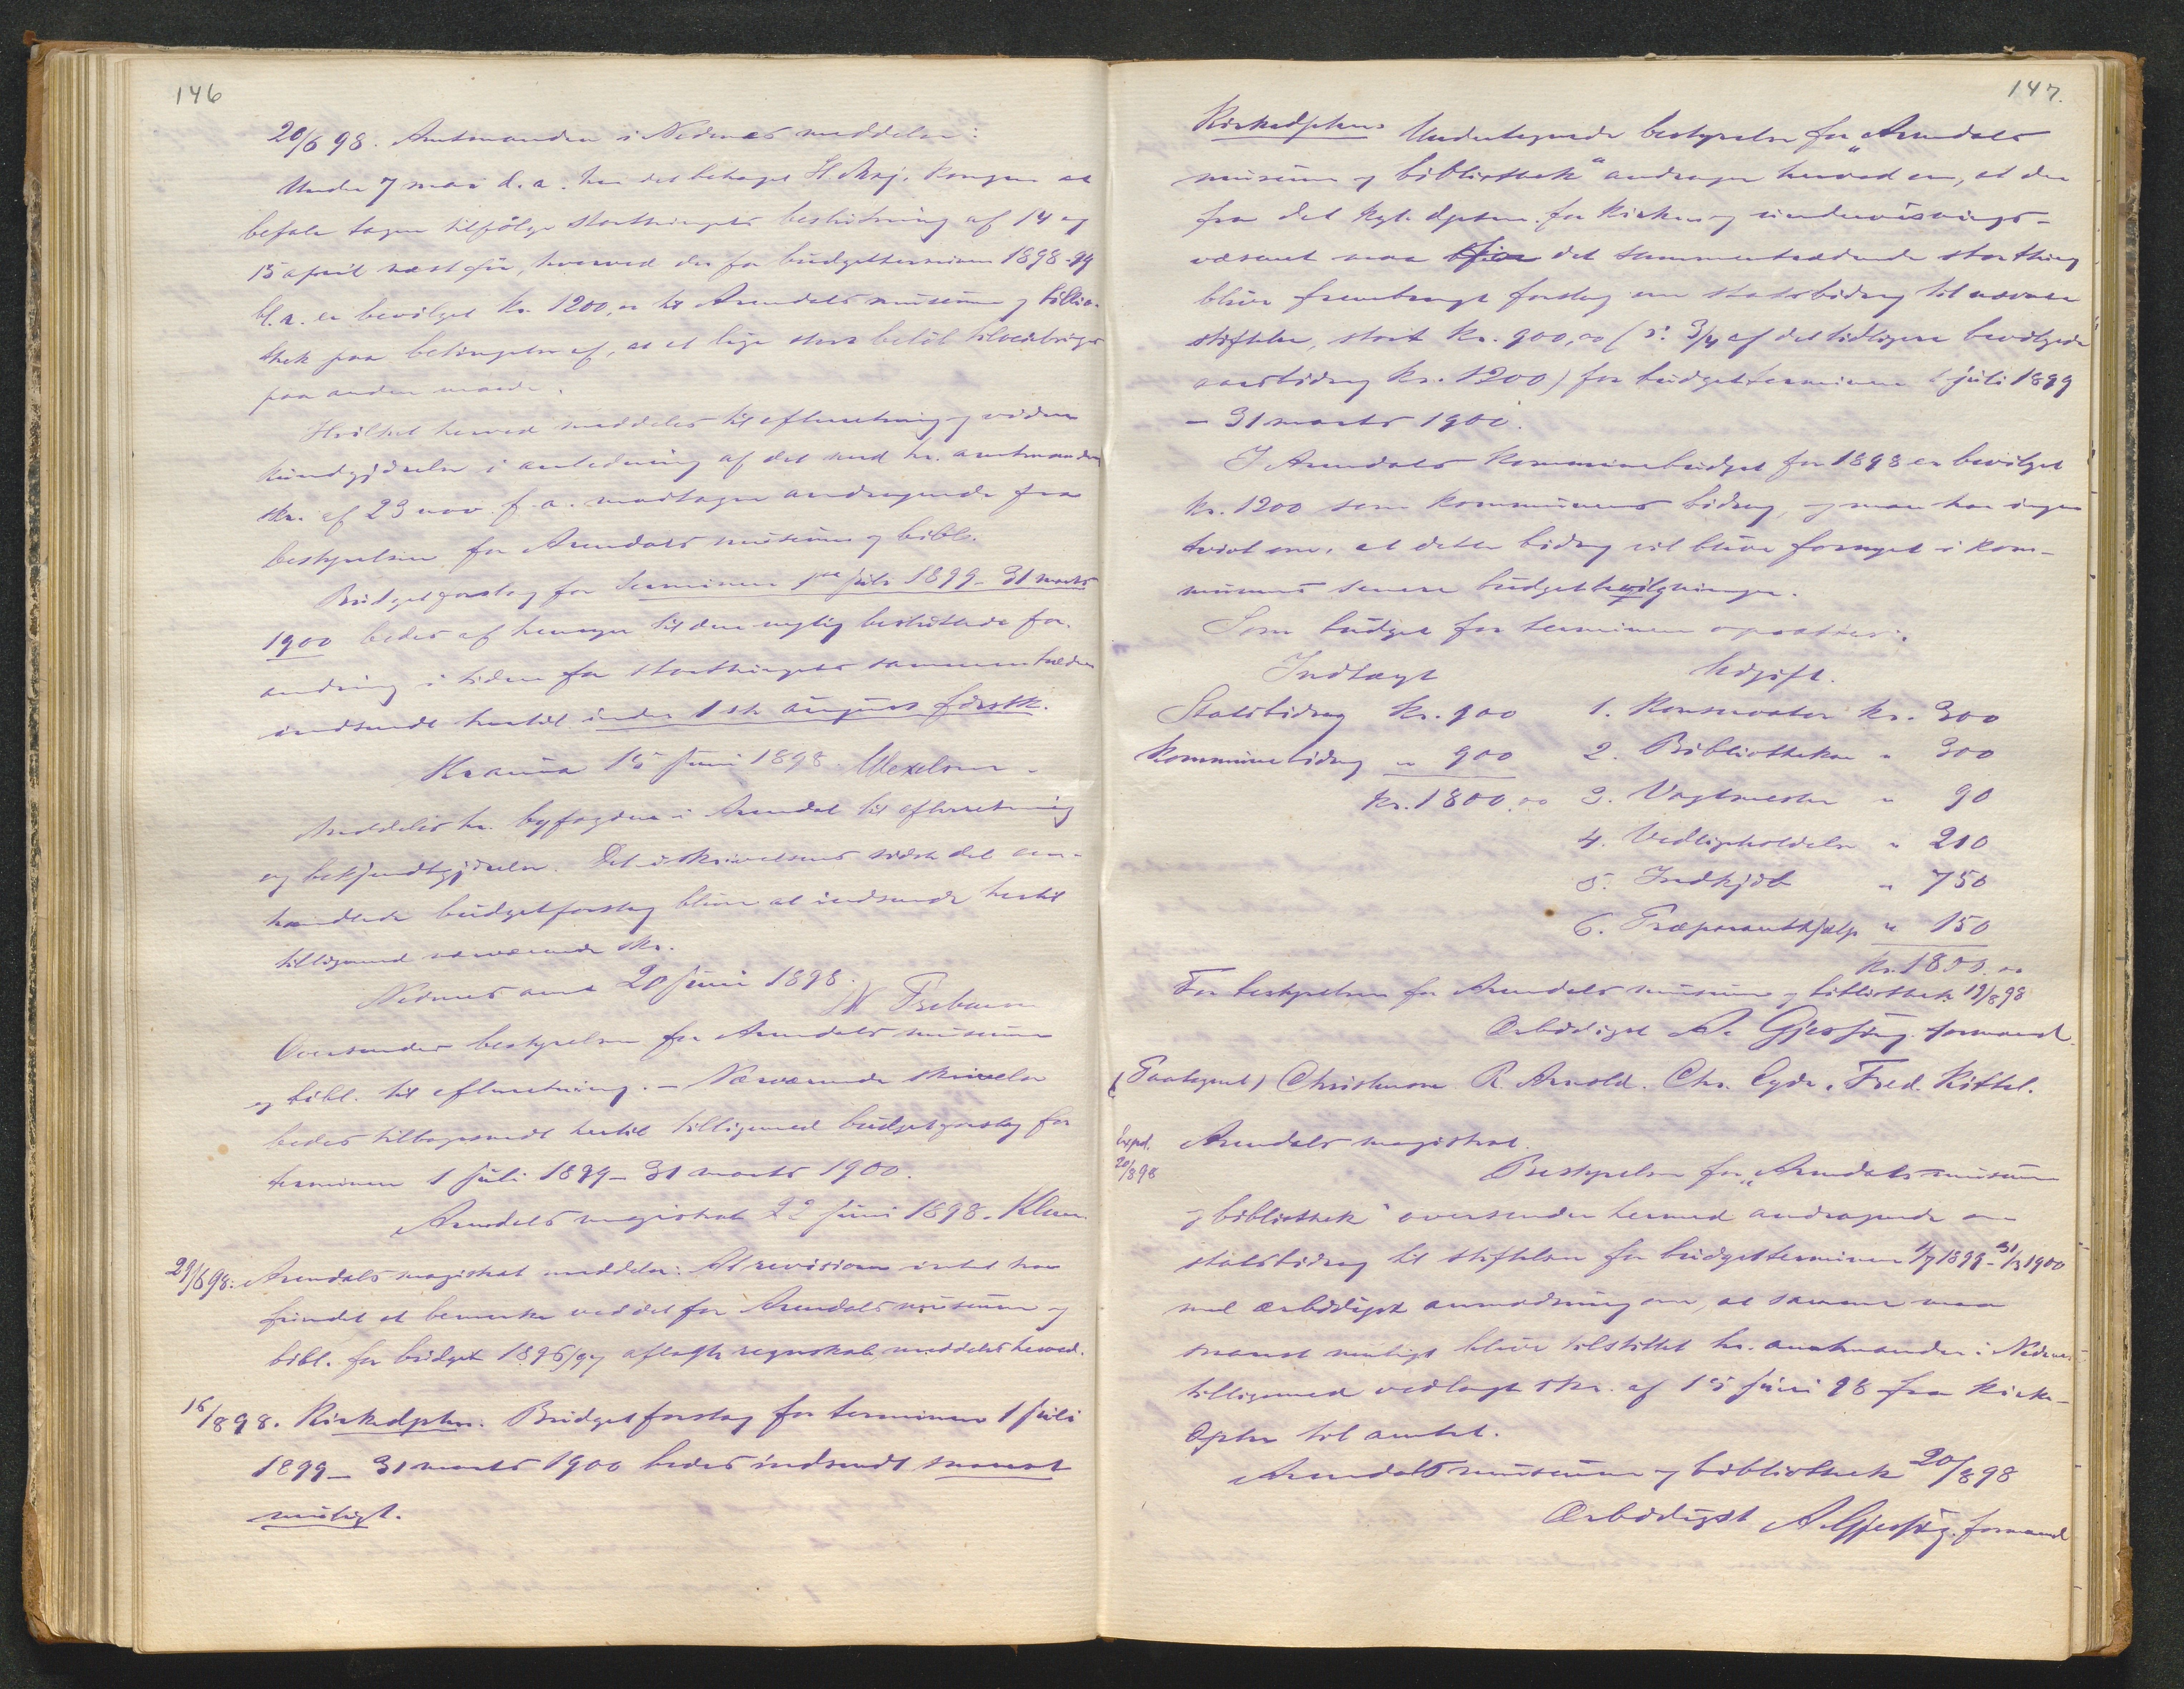 146
20/6 98. Amtmanden i Nedenes meddeler:
Under 7 mai d.a. har det behaget H. Maj. Kongen at
befale tagen tilfølge storthingets beslutning af 14 og
15 april næstfør, hvorved der for budgetterminen 1898-99
bl.a. er bevilget kr. 1200,00 til Arendals museum og biblio-
thek paa betingelse af, at et lige stort beløb tilveiebringes
paa anden maade.
Hvilket herved meddeles til efterretning og videre
kundgjørelse i anledning af det med hr. amtmandens
skr. af 23 nov. f.a. modtagne andragende fra
bestyrelsen for Arendals museum og bibl.
Budgetforslag for terminen 1ste juli 1899 - 31 marts
1900 bedes af hensyn til den nylig besluttede for-
andring i tiden for storthingets sammentræden
indsendt hertil inden 1ste august førstk.
Kr.ania 15 juni 1898. Wexelsen.
Meddeles hr. byfogden i Arendal til efterretning
og bekjendtgjørelse. Det i skrivelsens sidste del om-
handlede budgetforslag bliver at indsende hertil
tilligemed nærværende skr.
Nedenes amt 20 juni 1898.
N Prebensen
Oversendes bestyrelsen for Arendals museum
og bibl. til efterretning. - Nærværende skrivelse
bedes tilbagesendt hertil tilligemed budgetforslag for
terminen 1 juli 1899 - 31 marts 1900.
Arendals magistrat 22 juni 1898. Klem.
29/6 98. Arendals magistrat meddeler: At revisionen intet har
fundet at bemerke ved det for Arendals museum og
bibl. for budget 1896/97 aflagte regnskab meddeles herved.
16/8 98. Kirkedptm. Budgetforslag for terminen 1 juli
1899 - 31 marts 1900 bedes indsendt snarest
muligt.
147.
Kirkedptem. Undertegnede bestyrelse for „Arendals
museum og bibliothek“ andrager herved om, at der
fra det kgl. dptem. for kirken og undervisnings-
væsenet maa for det sammentrædende storthing
blive frembragt forslag om statsbidrag til nævnte
stiftelse, stort kr. 900,00 (ɔ: 3/4 af det tidligere bevilgede
aarsbidrag kr. 1200) for budgetterminen 1 juli 1899
- 31 marts 1900.
I Arendals kommunebudget for 1898 er bevilget
kr. 1200 som kommunens bidrag, og man har ingen
tvivl om, at dette bidrag vil blive fornyet i kom-
munens senere budgetbevilgninger.
Som budget for terminen opsættes:
Indtægt Udgift.
Statsbidrag kr. 900 1. Konservator kr. 300
Kommunebidrag " 900 2. Bibliothekar " 300
kr. 1800.00 3. Vagtmester " 90
4. Vedligeholdelse " 210
5. Indkjøb " 750
6. Præparanthjælp " 150
kr. 1800.00
For bestyrelsen for Arendals museum og bibliothek 19/8 98
Ærbødigst A. Gjessing. formand.
(Paategnet) Christensen R. Arnold. Chr. Eyde. Fred. Kittel.
Exped. 20/8 98
Arendals magistrat.
Bestyrelsen for „Arendals museum
og bibliothek“ oversender hermed andragende om
statsbidrag til stiftelsen for budgetterminen 1/7 1899 - 31/3 1900
med ærbødigst anmodning om, at samme maa
snarest muligt blive tilstillet hr. amtmanden i Nedenes
tilligemed vedlagte skr. af 15 juni 98 fra Kirke-
dptm til amtet.
Arendals museum og bibliothek 20/8 98
Ærbødigst A. Gjessing. formand